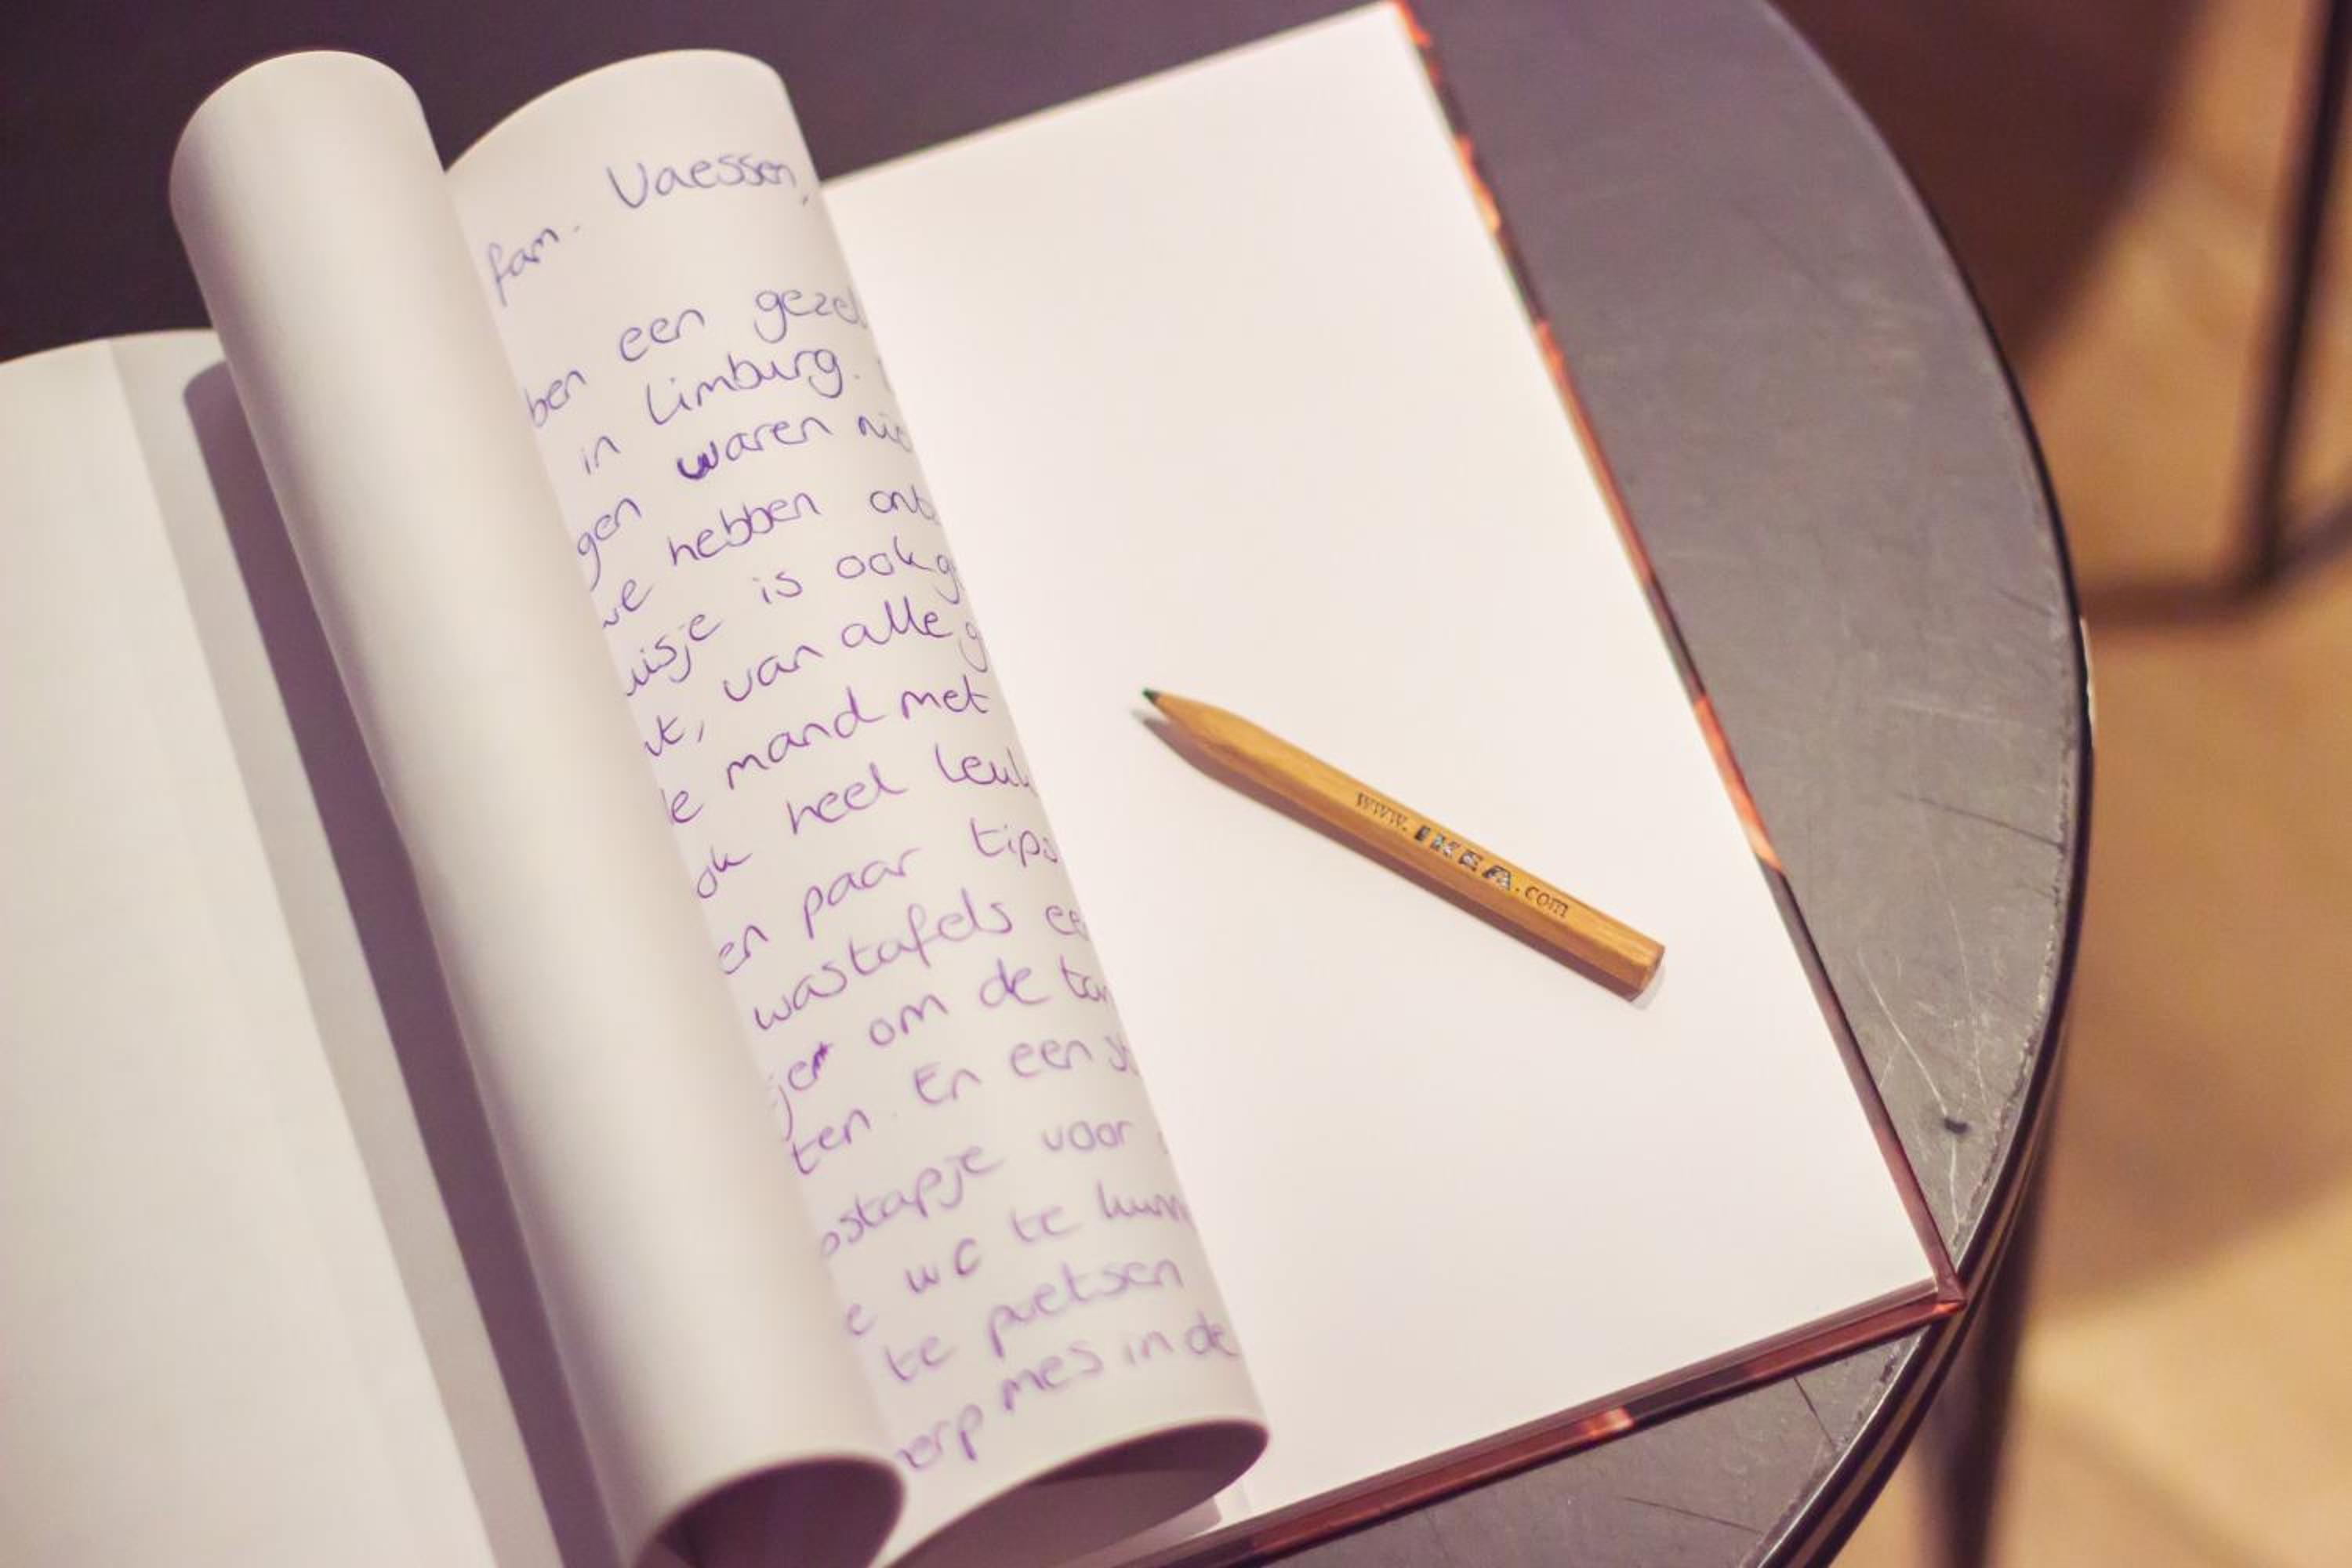 fam. Vaessen,
ben een gezel
in Limburg.
gen waren nie
we hebben ont
uisje is ook g
kt, van alle g
le mand met
ok heel leuk
en paar tips
wastafels ee
jer om de tan
ten. En een
pstapje voor
e wc te kunn
te poetsen
herp mes in de
www.IKEA.com